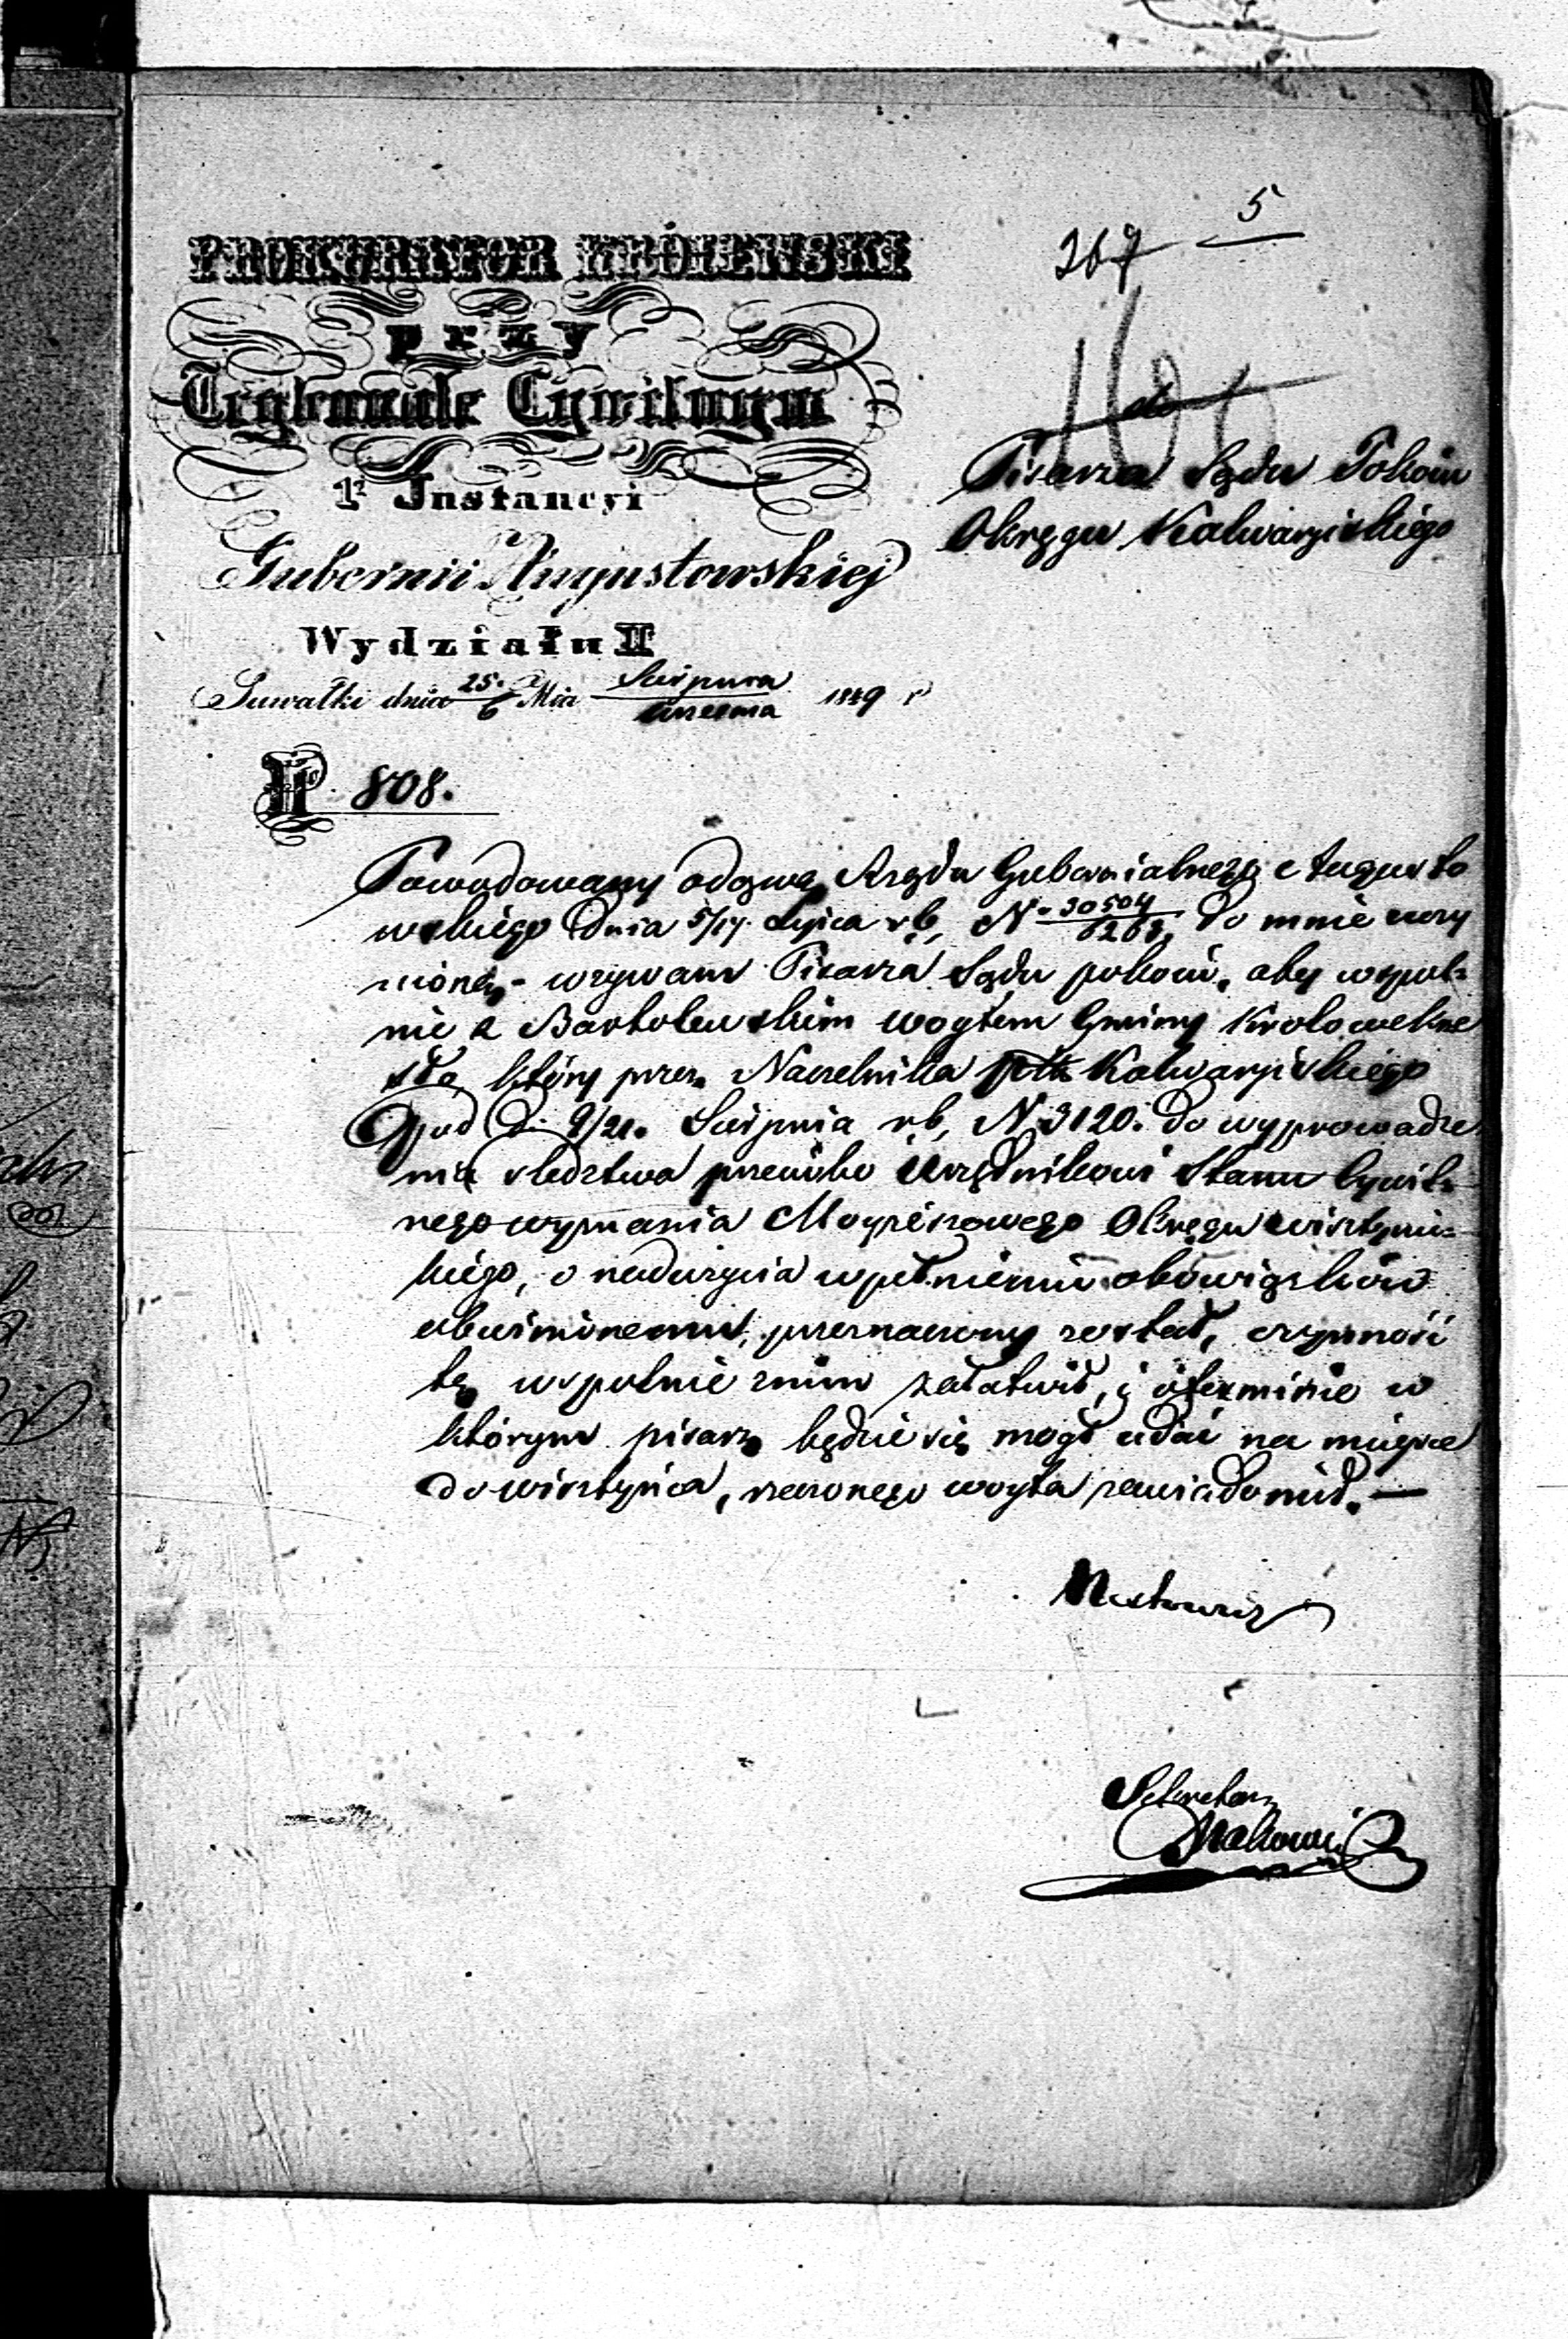 5
367
PROKURATOR KRÓLEWSKI
przy
Trybunale Cywilnym
1ej Instancyi
Gubernii Augustowskiej
Wydziału II
Suwałki dnia 25/6 Mca Sierpnia/Września 1849 r
do
Pisarza Sądu Pokoiu
Okręgu Kalwaryiskiego
No 808.
Powodowany odezwą Rządu Gubernialnego Augusto
wskiego dnia 5/17. Lipca rb, N. 30504/ do mnie uczy
nioną - wzywam Pisarza Sądu pokoiu, aby wspól-
nie z Bartolewskim woytem Gminy Krolowekrze
sło który przez Naczelnika Kalwaryiskiego
pod d. 9/21. Sierpnia rb, N. 3120. do wyprowadze
nia sledztwa przeciwko Urzędnikowi Stanu Cywil-
nego wyznania Moyżeszowego Okręgu wisztynie-
kiego, o nadużycia w pełnieniu obowiązków
obwinionemu, przeznaczony został, czynność
tę wspolnie znim załatwił, i oterminie w
którym pisarz będzie się mogł udać na mieysce
do wisztyńca, rzeczonego woyta zawiadomił. —
Sekretarz